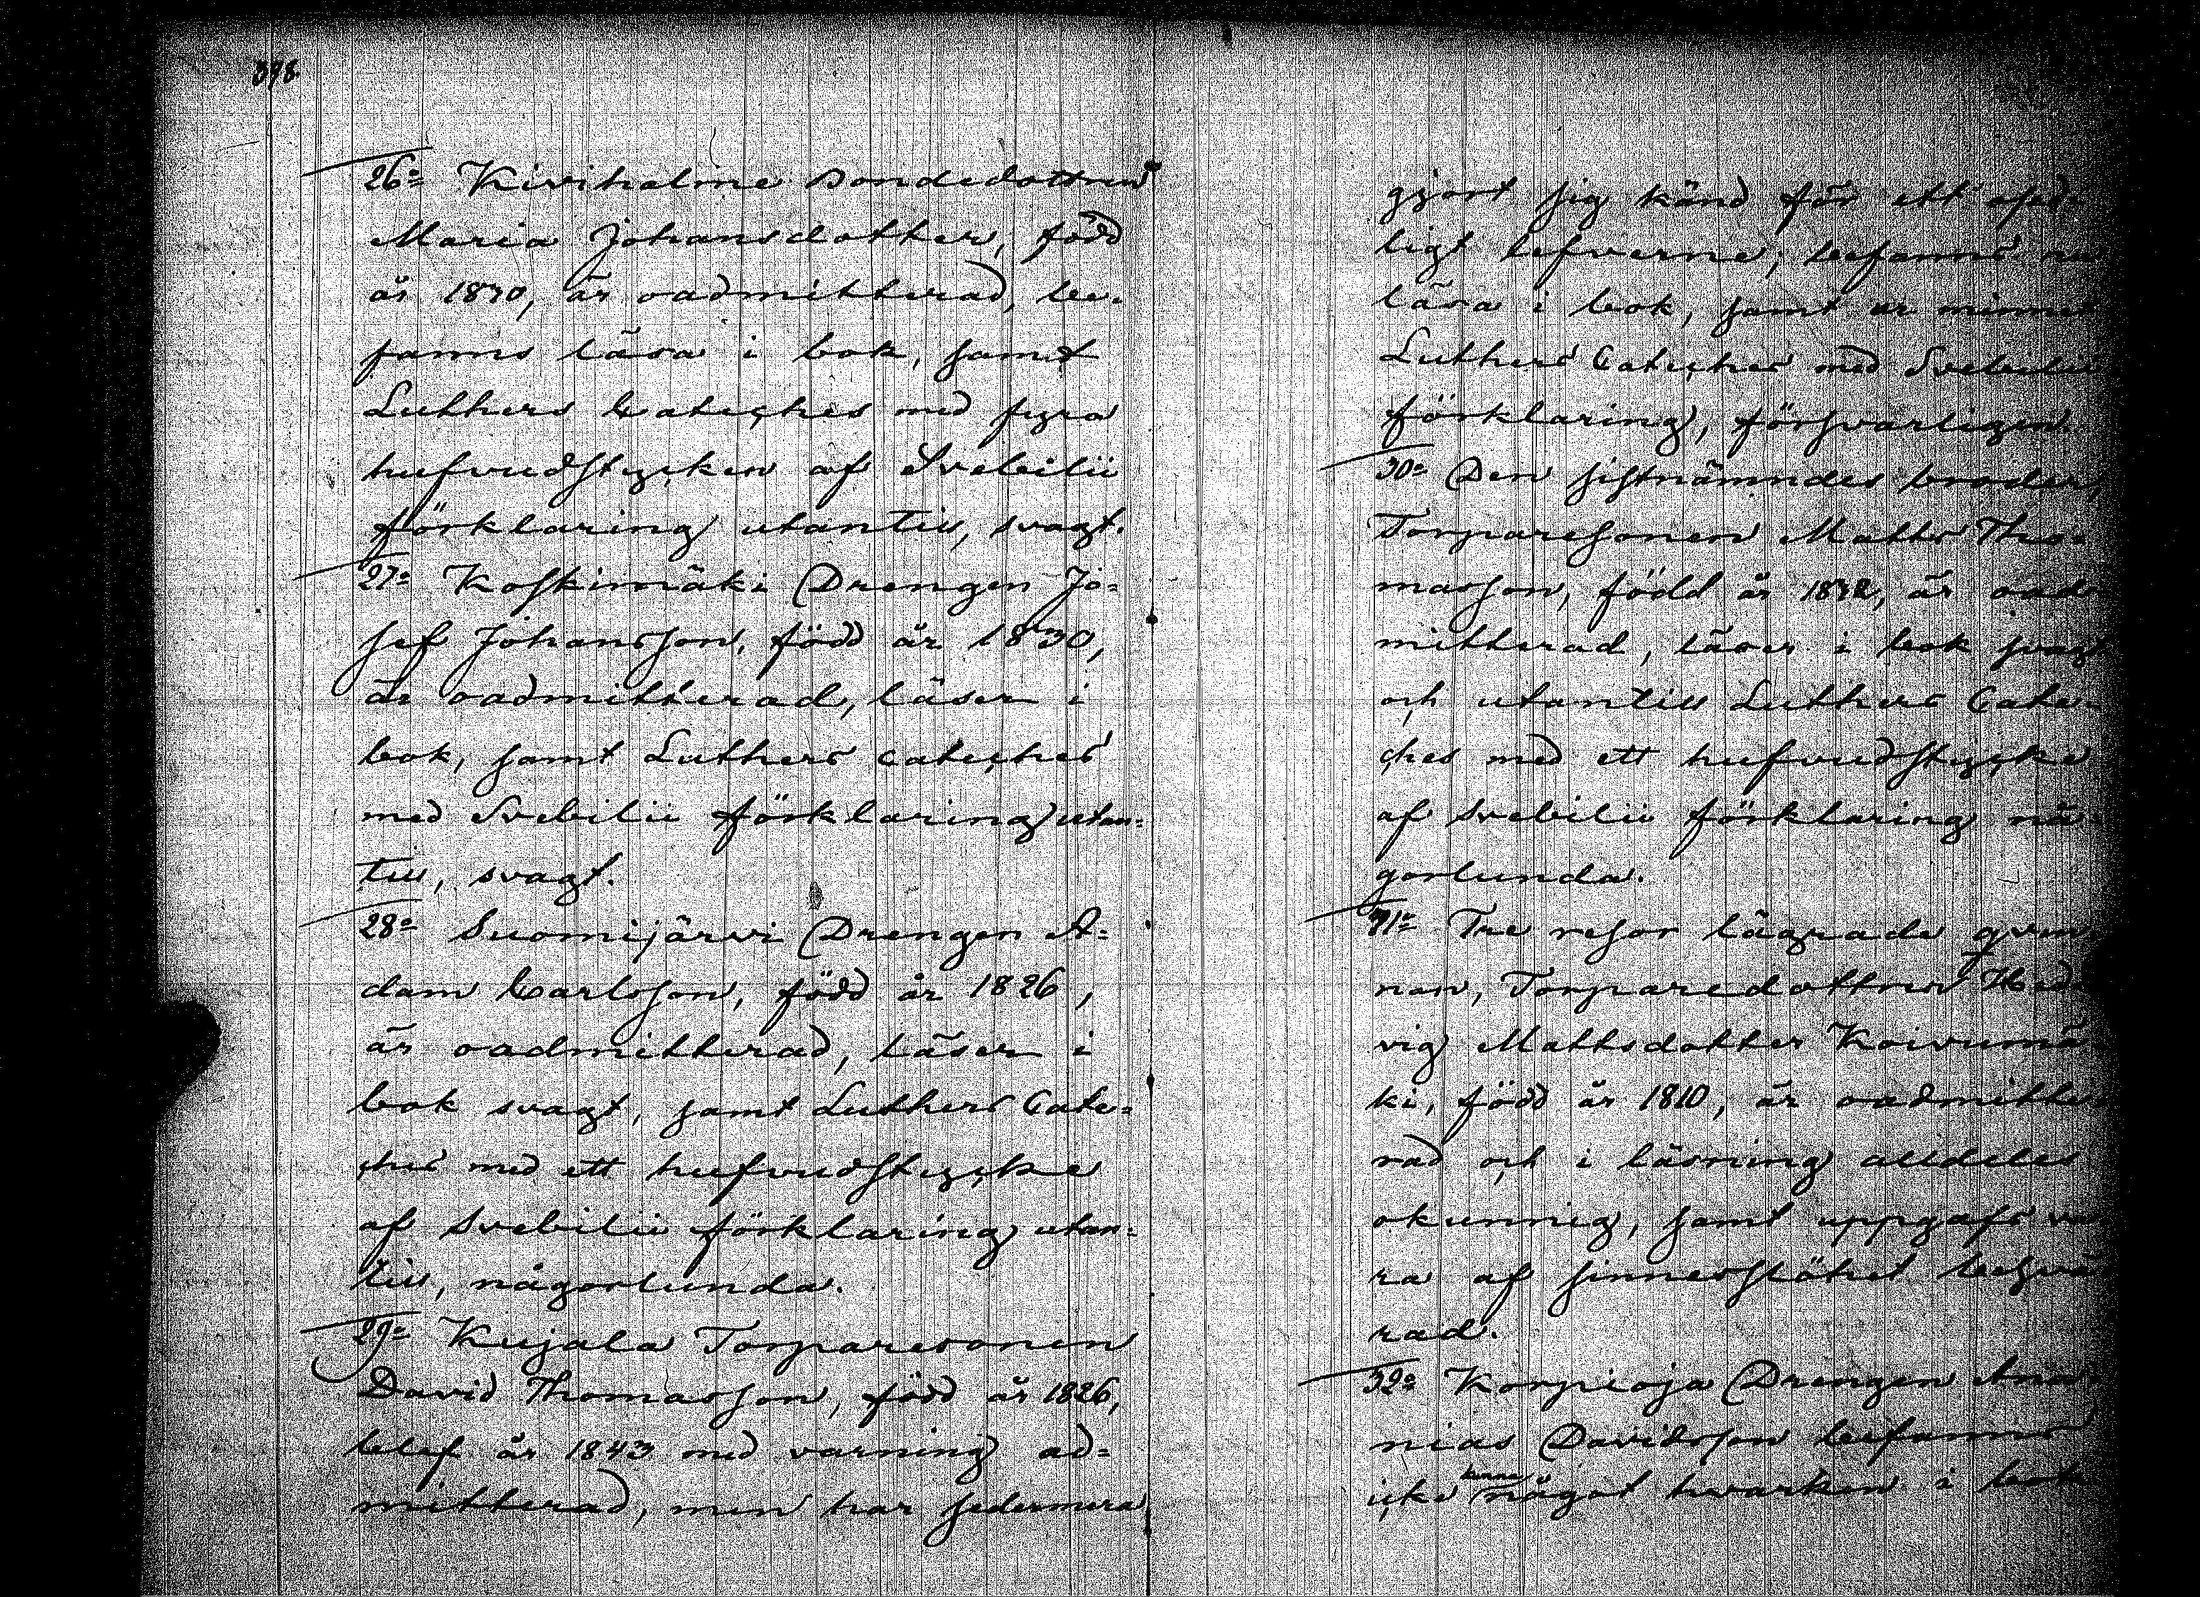 398.
26:o Kiviholme Bondedottren
Maria Johansdotter, född
år 1830, är oadmitterad, be-
fanns läsa i bok, samt
Luthers Cateches med fyra
hufvudstycken af Svebilii
förklaring utantill, svagt.
27:o Koskimäki Drengen Jo=
sef Johansson, född år 1830,
är oadmitterad, läser i
bok, samt Luthers Cateches
med Svebilii förklaring utan=
till, svagt.
28:o Suomijärvi Drengen A=
dam Carlsson, född år 1826,
är oadmitterad, läser i
bok svagt, samt Luthers Cate=
ches med ett hufvudstycke
af Svebilii förklaring utan=
till, någorlunda.
29:o Kujala Torparesonen
David Thomasson, född år 1826,
blef år 1843 med varning ad=
mitterad, men har sedermera
gjort sig känd för ett osed-
ligt lefverne; befanns nu
läsa i bok, samt ur minnet
Luthers Cateches med Svebilii
förklaring, försvarligen.
30:o Den sistnämndes broder,
Torparesonen Matts Tho=
masson, född år 1832, är oad
mitterad, läser i bok svagt
och utantill Luthers Cate-
ches med ett hufvudstycke
af Svebilii förklaring nå-
gorlunda.
31:o Tre resor lägrade qvin
nan, Torparedottren Hed-
vig Mattsdotter Koivumä
ki, född år 1810, är oadmitte
rad och i läsning alldeles
okunnig, samt uppgafs va
ra af sinnesslöhet besvä
rad.
32:o Korpioja Drengen Ana-
nias Davidsson befanns
icke kunna något hvarken i bok